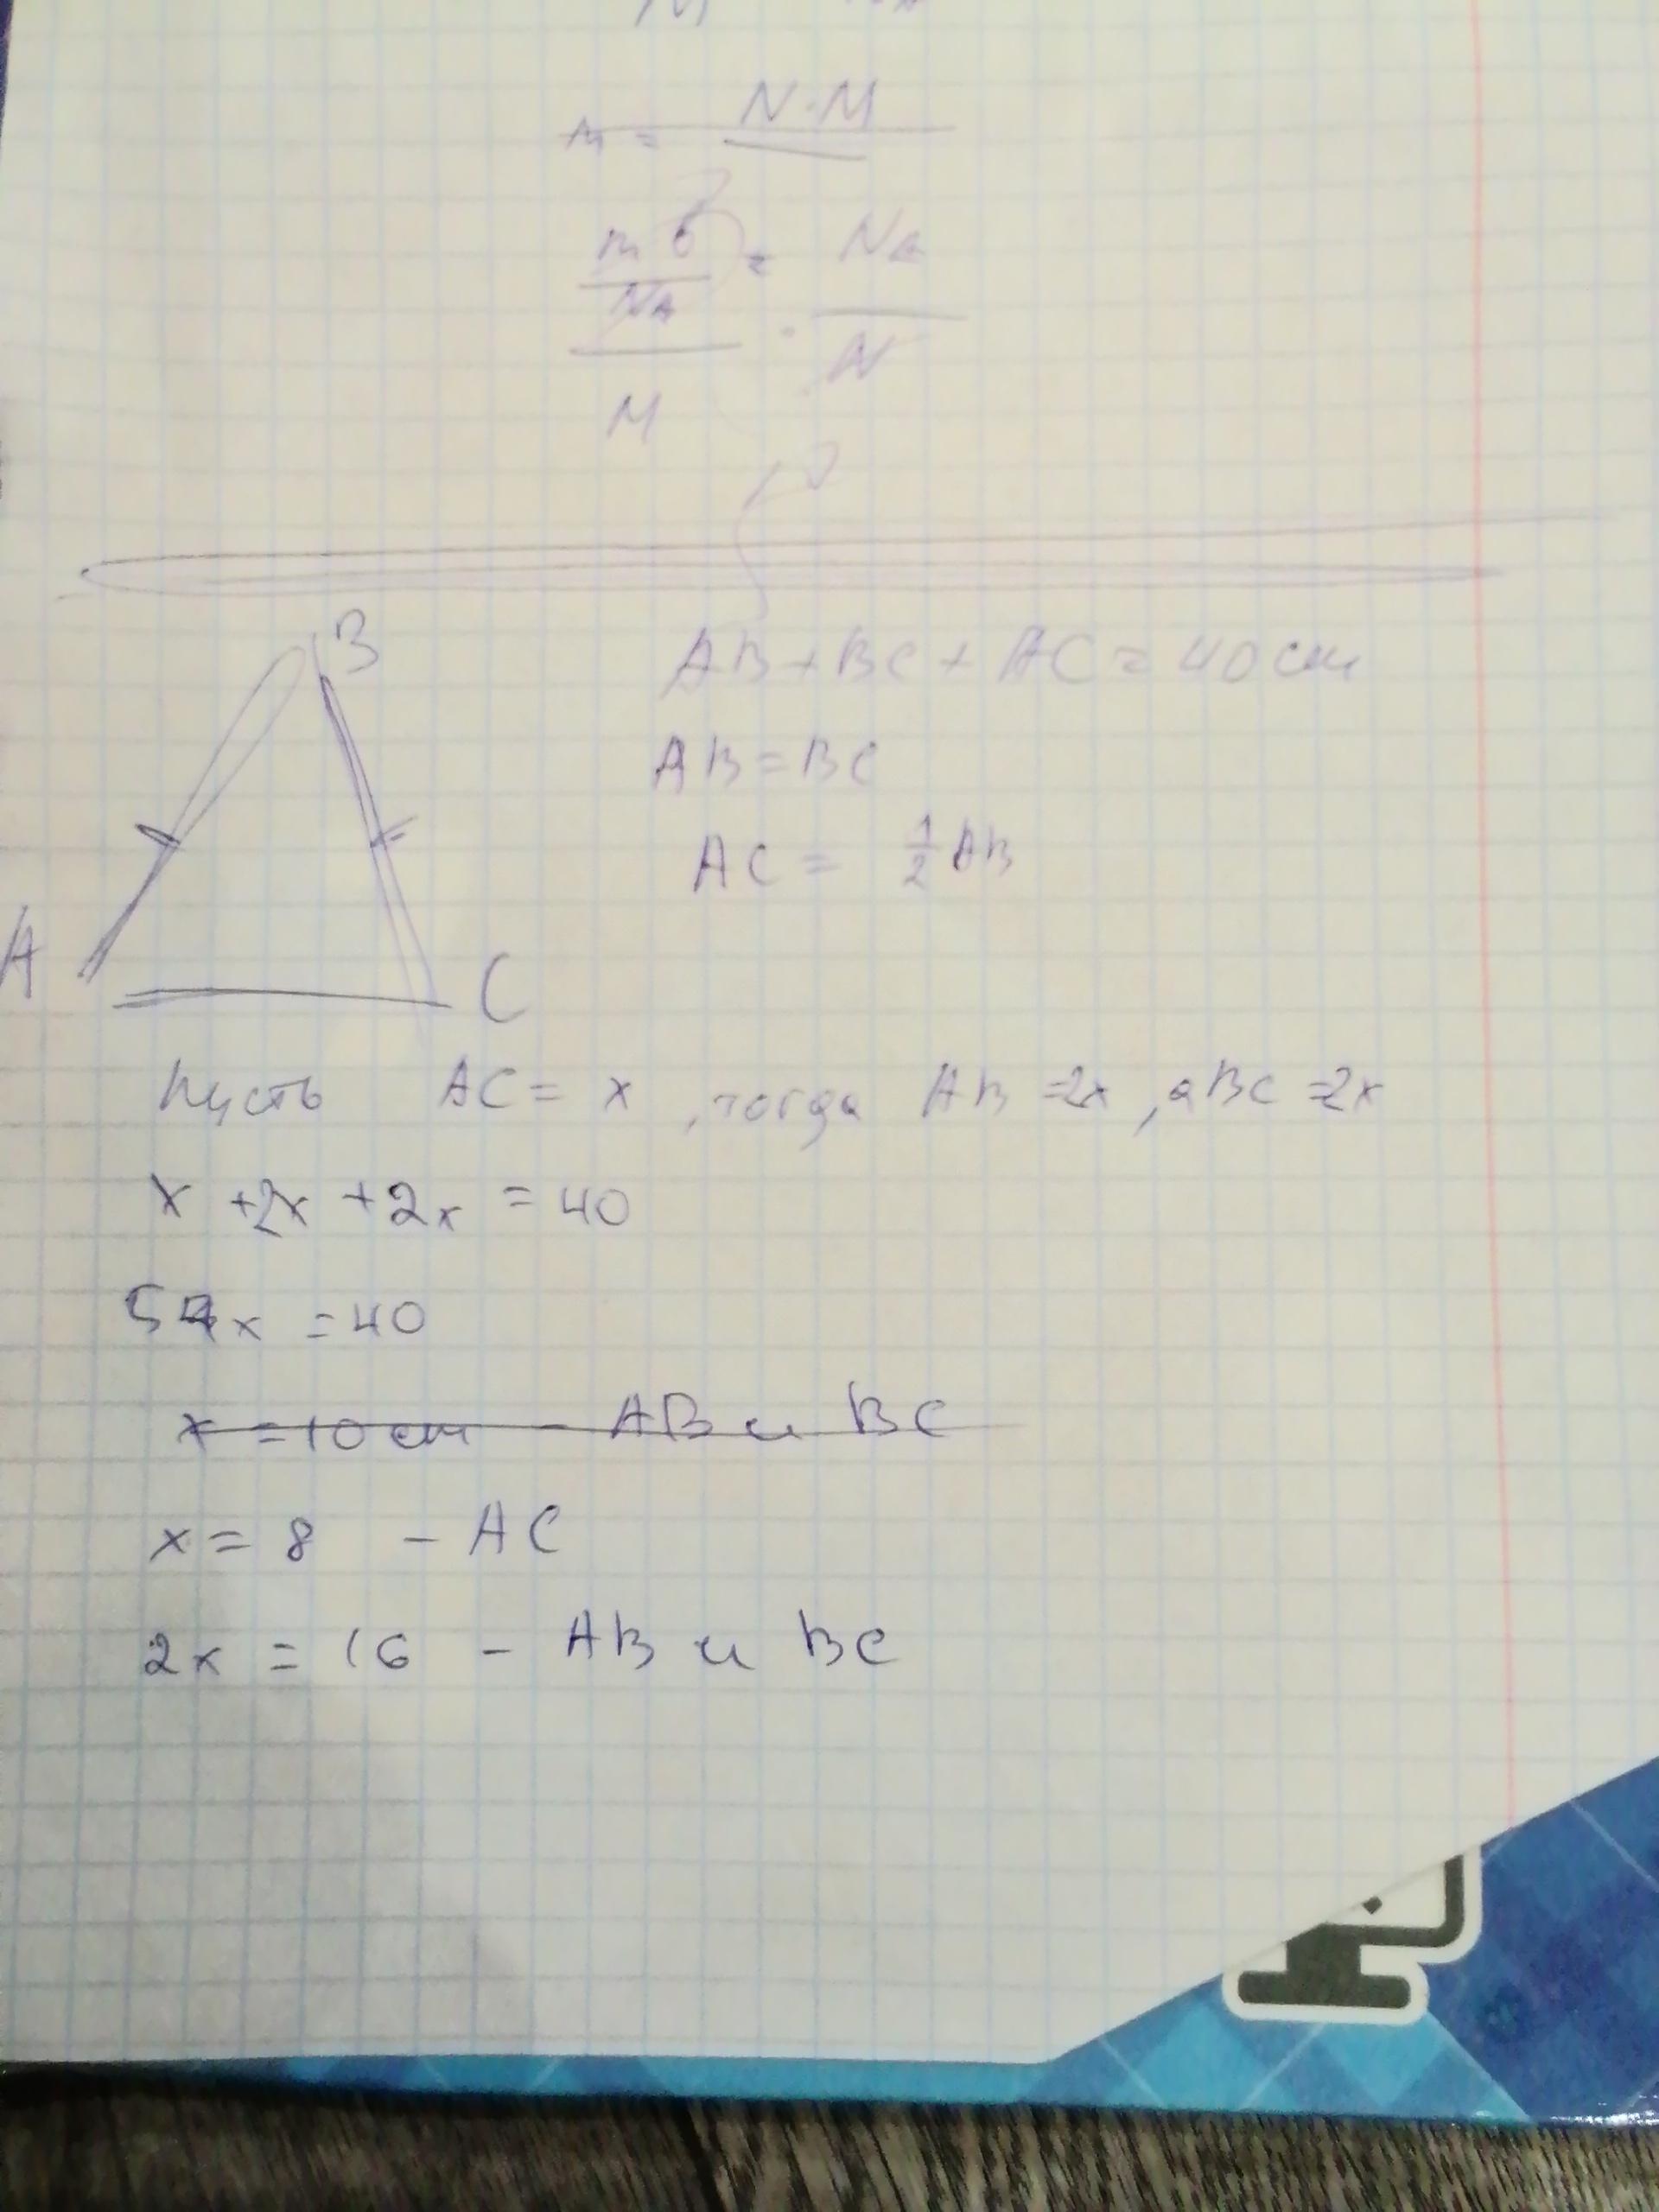 m = N·M
m б = Na
Na
M
N
B
AB + BC + AC = 40 см
AB = BC
AC = 1/2 AB
A
C
Пусть AC = x, тогда AB = 2x, а BC = 2x
x + 2x + 2x = 40
5x = 40
x = 10 см - AB и BC
x = 8 - AC
2x = 16 - AB и BC